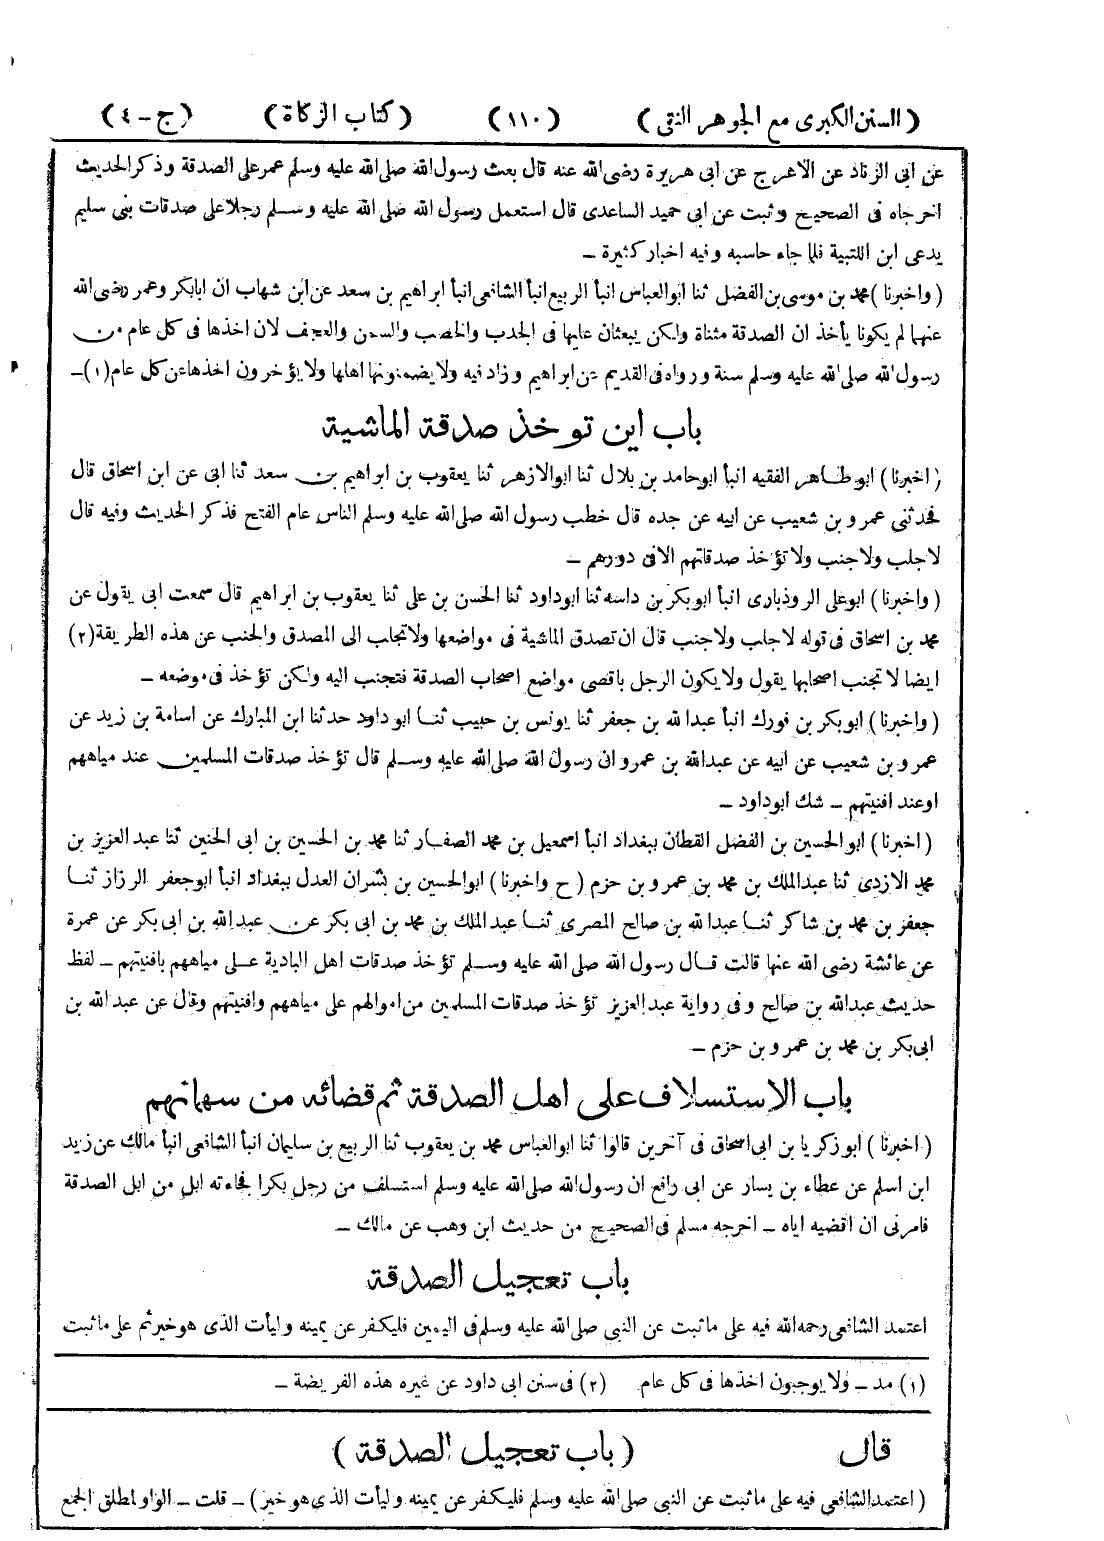 (السنن الكبرى مع الجوهر النقى) (١١٠) (كتاب الزكاة) (ج - ٤)
عن ابى الزناد عن الاعرج عن ابى هريرة رضى الله عنه قال بعث رسول الله صلى الله عليه وسلم عمر على الصدقة وذكر الحديث
اخرجاه فى الصحيح وثبت عن ابى حميد الساعدى قال استعمل رسول الله صلى الله عليه وسلم رجلا على صدقات بنى سليم
يدعى ابن اللتبية فلما جاء حاسبه وفيه اخبار كثيرة -
(واخبرنا) محمد بن موسى بن الفضل ثنا ابو العباس انبأ الربيع انبأ الشافعى انبأ ابراهيم بن سعد عن ابن شهاب ان ابابكر وعمر رضى الله
عنهما لم يكونا يأخذ ان الصدقة مثناة ولكن يبعثان عليها فى الجدب والخصب والسمن والعجف لان اخذها فى كل عام من
رسول الله صلى الله عليه وسلم سنة ورواه فى القديم عن ابراهيم وزاد فيه ولا يضمنونها اهلها ولا يؤخرون اخذها عن كل عام (١) -
باب اين توخذ صدقة الماشية
(اخبرنا) ابو طاهر الفقيه انبأ ابو حامد بن بلال ثنا ابو الازهر ثنا يعقوب بن ابراهيم بن سعد ثنا ابى عن ابن اسحاق قال
فحدثنى عمرو بن شعيب عن ابيه عن جده قال خطب رسول الله صلى الله عليه وسلم الناس عام الفتح فذكر الحديث وفيه قال
لا جلب ولا جنب ولا تؤخذ صدقاتهم الا فى دورهم -
(واخبرنا) ابو على الروذبارى انبأ ابو بكر بن داسه ثنا ابو داود ثنا الحسن بن على ثنا يعقوب بن ابراهيم قال سمعت ابى يقول عن
محمد بن اسحاق فى قوله لا جلب ولا جنب قال ان تصدق الماشية فى مواضعها ولا تجلب الى المصدق والجنب عن هذه الطريقة (٢)
ايضا لا تجنب اصحابها يقول ولا يكون الرجل باقصى مواضع اصحاب الصدقة فتجنب اليه ولكن تؤخذ فى موضعه -
(واخبرنا) ابو بكر بن فورك انبأ عبد الله بن جعفر ثنا يونس بن حبيب ثنا ابو داود حدثنا ابن المبارك عن اسامة بن زيد عن
عمرو بن شعيب عن ابيه عن عبد الله بن عمرو ان رسول الله صلى الله عليه وسلم قال تؤخذ صدقات المسلمين عند مياههم
او عند افنيتهم - شك ابو داود -
(اخبرنا) ابو الحسين بن الفضل القطان ببغداد انبأ اسمعيل بن محمد الصفار ثنا محمد بن الحسين بن ابى الحنين ثنا عبد العزيز بن
محمد الازدى ثنا عبد الملك بن محمد بن عمرو بن حزم (ح واخبرنا) ابو الحسين بن بشران العدل ببغداد انبأ ابو جعفر الرزاز ثنا
جعفر بن محمد بن شاكر ثنا عبد الله بن صالح المصرى ثنا عبد الملك بن محمد بن ابى بكر عن عبد الله بن ابى بكر عن عمرة
عن عائشة رضى الله عنها قالت قال رسول الله صلى الله عليه وسلم تؤخذ صدقات اهل البادية على مياههم بافنيتهم - لفظ
حديث عبد الله بن صالح وفى رواية عبد العزيز تؤخذ صدقات المسلمين من اموالهم على مياههم وافنيتهم وقال عن عبد الله بن
ابى بكر بن محمد بن عمرو بن حزم -
باب الاستسلاف على اهل الصدقة ثم قضائه من سهمانهم
(اخبرنا) ابو زكريا بن ابى اسحاق فى آخرين قالوا ثنا ابو العباس محمد بن يعقوب ثنا الربيع بن سليمان انبأ الشافعى انبأ مالك عن زيد
ابن اسلم عن عطاء بن يسار عن ابى رافع ان رسول الله صلى الله عليه وسلم استسلف من رجل بكرا فجاءته ابل من ابل الصدقة
فامرنى ان اقضيه اياه - اخرجه مسلم فى الصحيح من حديث ابن وهب عن مالك -
باب تعجيل الصدقة
اعتمد الشافعى رحمه الله فيه على ما ثبت عن النبى صلى الله عليه وسلم فى اليمين فليكفر عن يمينه وليأت الذى هو خير ثم على ما ثبت
(١) مد - ولا يوجبون اخذها فى كل عام (٢) فى سنن ابى داود عن غيره هذه الفريضة -
قال (باب تعجيل الصدقة)
(اعتمد الشافعى فيه على ما ثبت عن النبى صلى الله عليه وسلم فليكفر عن يمينه وليأت الذى هو خير) - قلت - الواو لمطلق الجمع